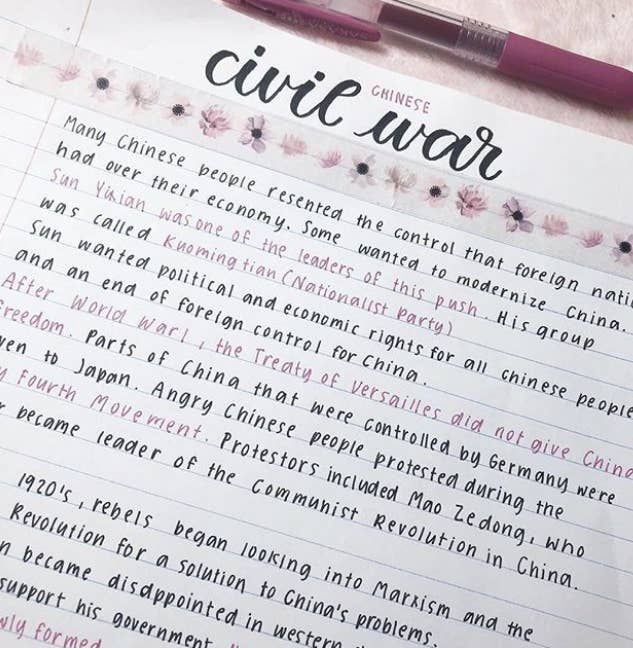 civil war
CHINESE
Many Chinese people resented the control that foreign nati
had over their economy. Some wanted to modernize China.
Sun Yixian was one of the leaders of this push. His group
was called Kuomingtian (Nationalist Party)
Sun wanted political and economic rights for all chinese people
and an end of foreign control for China.
After World War I, the Treaty of Versailles did not give China
freedom. Parts of China that were controlled by Germany were
ven to Japan. Angry Chinese people protested during the
y Fourth Movement. Protestors included Mao Zedong, who
r became leader of the Communist Revolution in China.
1920's, rebels began looking into Marxism and the
Revolution for a solution to China's problems.
n became disappointed in western
support his government
wly formed